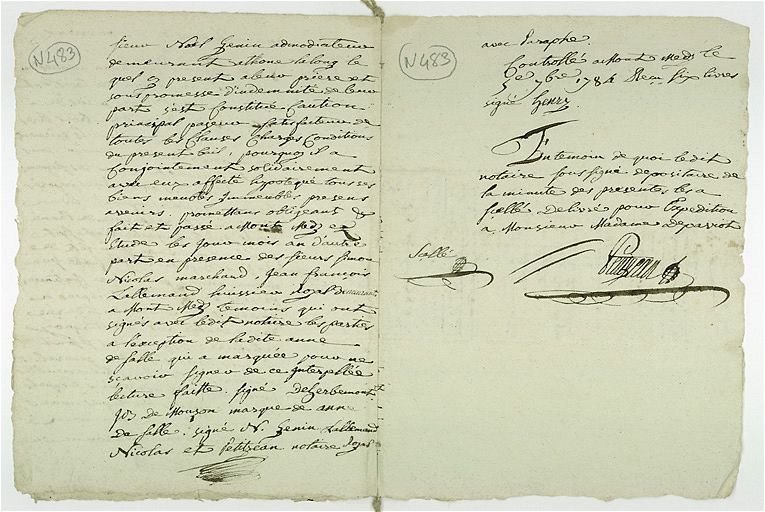 N483
sieur Noël Henin admodiateur
demeurant
quel cy present a leur prière et
sous promesse d'indemnité de leur
part s'est Constitué Caution
principal payeur Satisfacteur de
toutes les Clauses Charges Conditions
du present bail, pourquoy il a
Conjointement solidairement
avec eux affecté hypotequé tous ses
biens meubles Immeubles presens
avenirs, promettans obligeans &
fait et passé a Montmedy en
Etude les Jour mois an d'autre
part en presence des sieurs Simon
Nicolas marchand, Jean François
Lallemand huissier Royal demeurans
a Montmedy temoins qui ont
signés avec ledit notaire les parties
a l'exception de ladite anne
de salle qui a marquée pour ne
scavoir signer de ce Interpellée
lecture faitte. signé Deherbemont
de Mouzon marque de anne
de Salle. signé N. henin Lallemand
Nicolas et Petitjean notaire Royal
N483
avec Paraphe.
Controllé a Montmedy le
7bre 1784 Reçu six livres
signé henry.
En temoin de quoi ledit
notaire soussigné depositaire de
la minute des presentes les a
scellé Delivré pour Expedition
a Monsieur Madame
Scellé
Petitjean